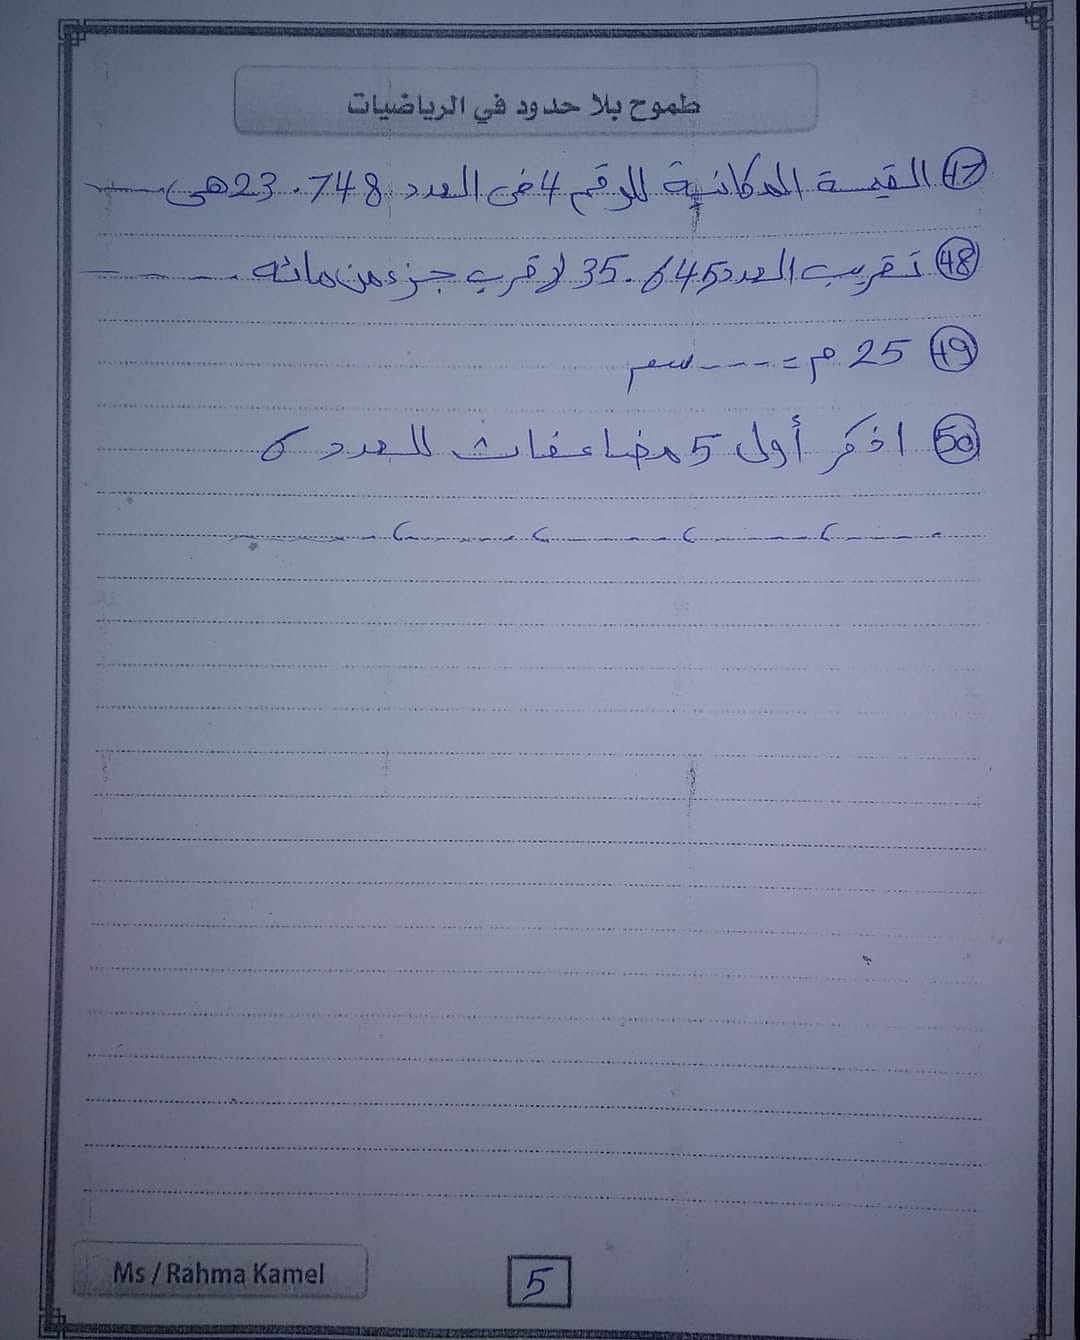 طموح بلا حدود في الرياضيات
47 القيمة المكانية للرقم 4 فى العدد 23.748 هى ----
48 تقريب العدد 35.645 لاقرب جزء من مائه -----
49 25 م = ---- سم
50 اذكر أول 5 مضاعفات للعدد 6
---- ، ---- ، ---- ، ---- ، ----
Ms / Rahma Kamel
5